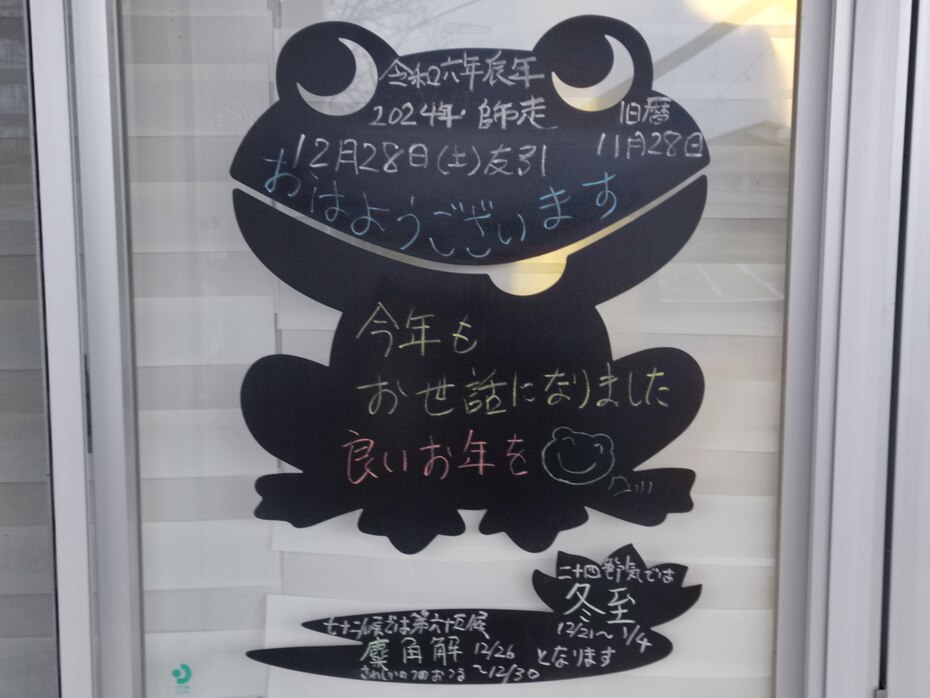 令和六年辰年
2024年・師走
旧暦
12月28日(土)友引
11月28日
おはようございます
今年も
お世話になりました
良いお年を
二十四節気では
冬至
12/21〜1/4
となります
七十二候では第六十五候
麋角解 12/26
さわしかのつのおつる 〜12/30